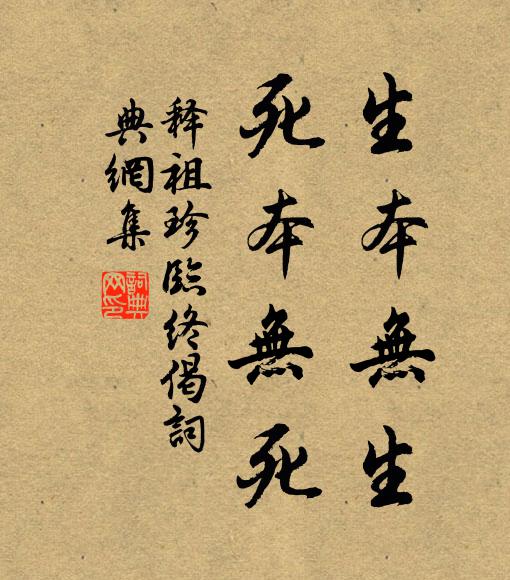 生本無生
死本無死
释祖珍臨终偈詞
典網集
詞典
网印